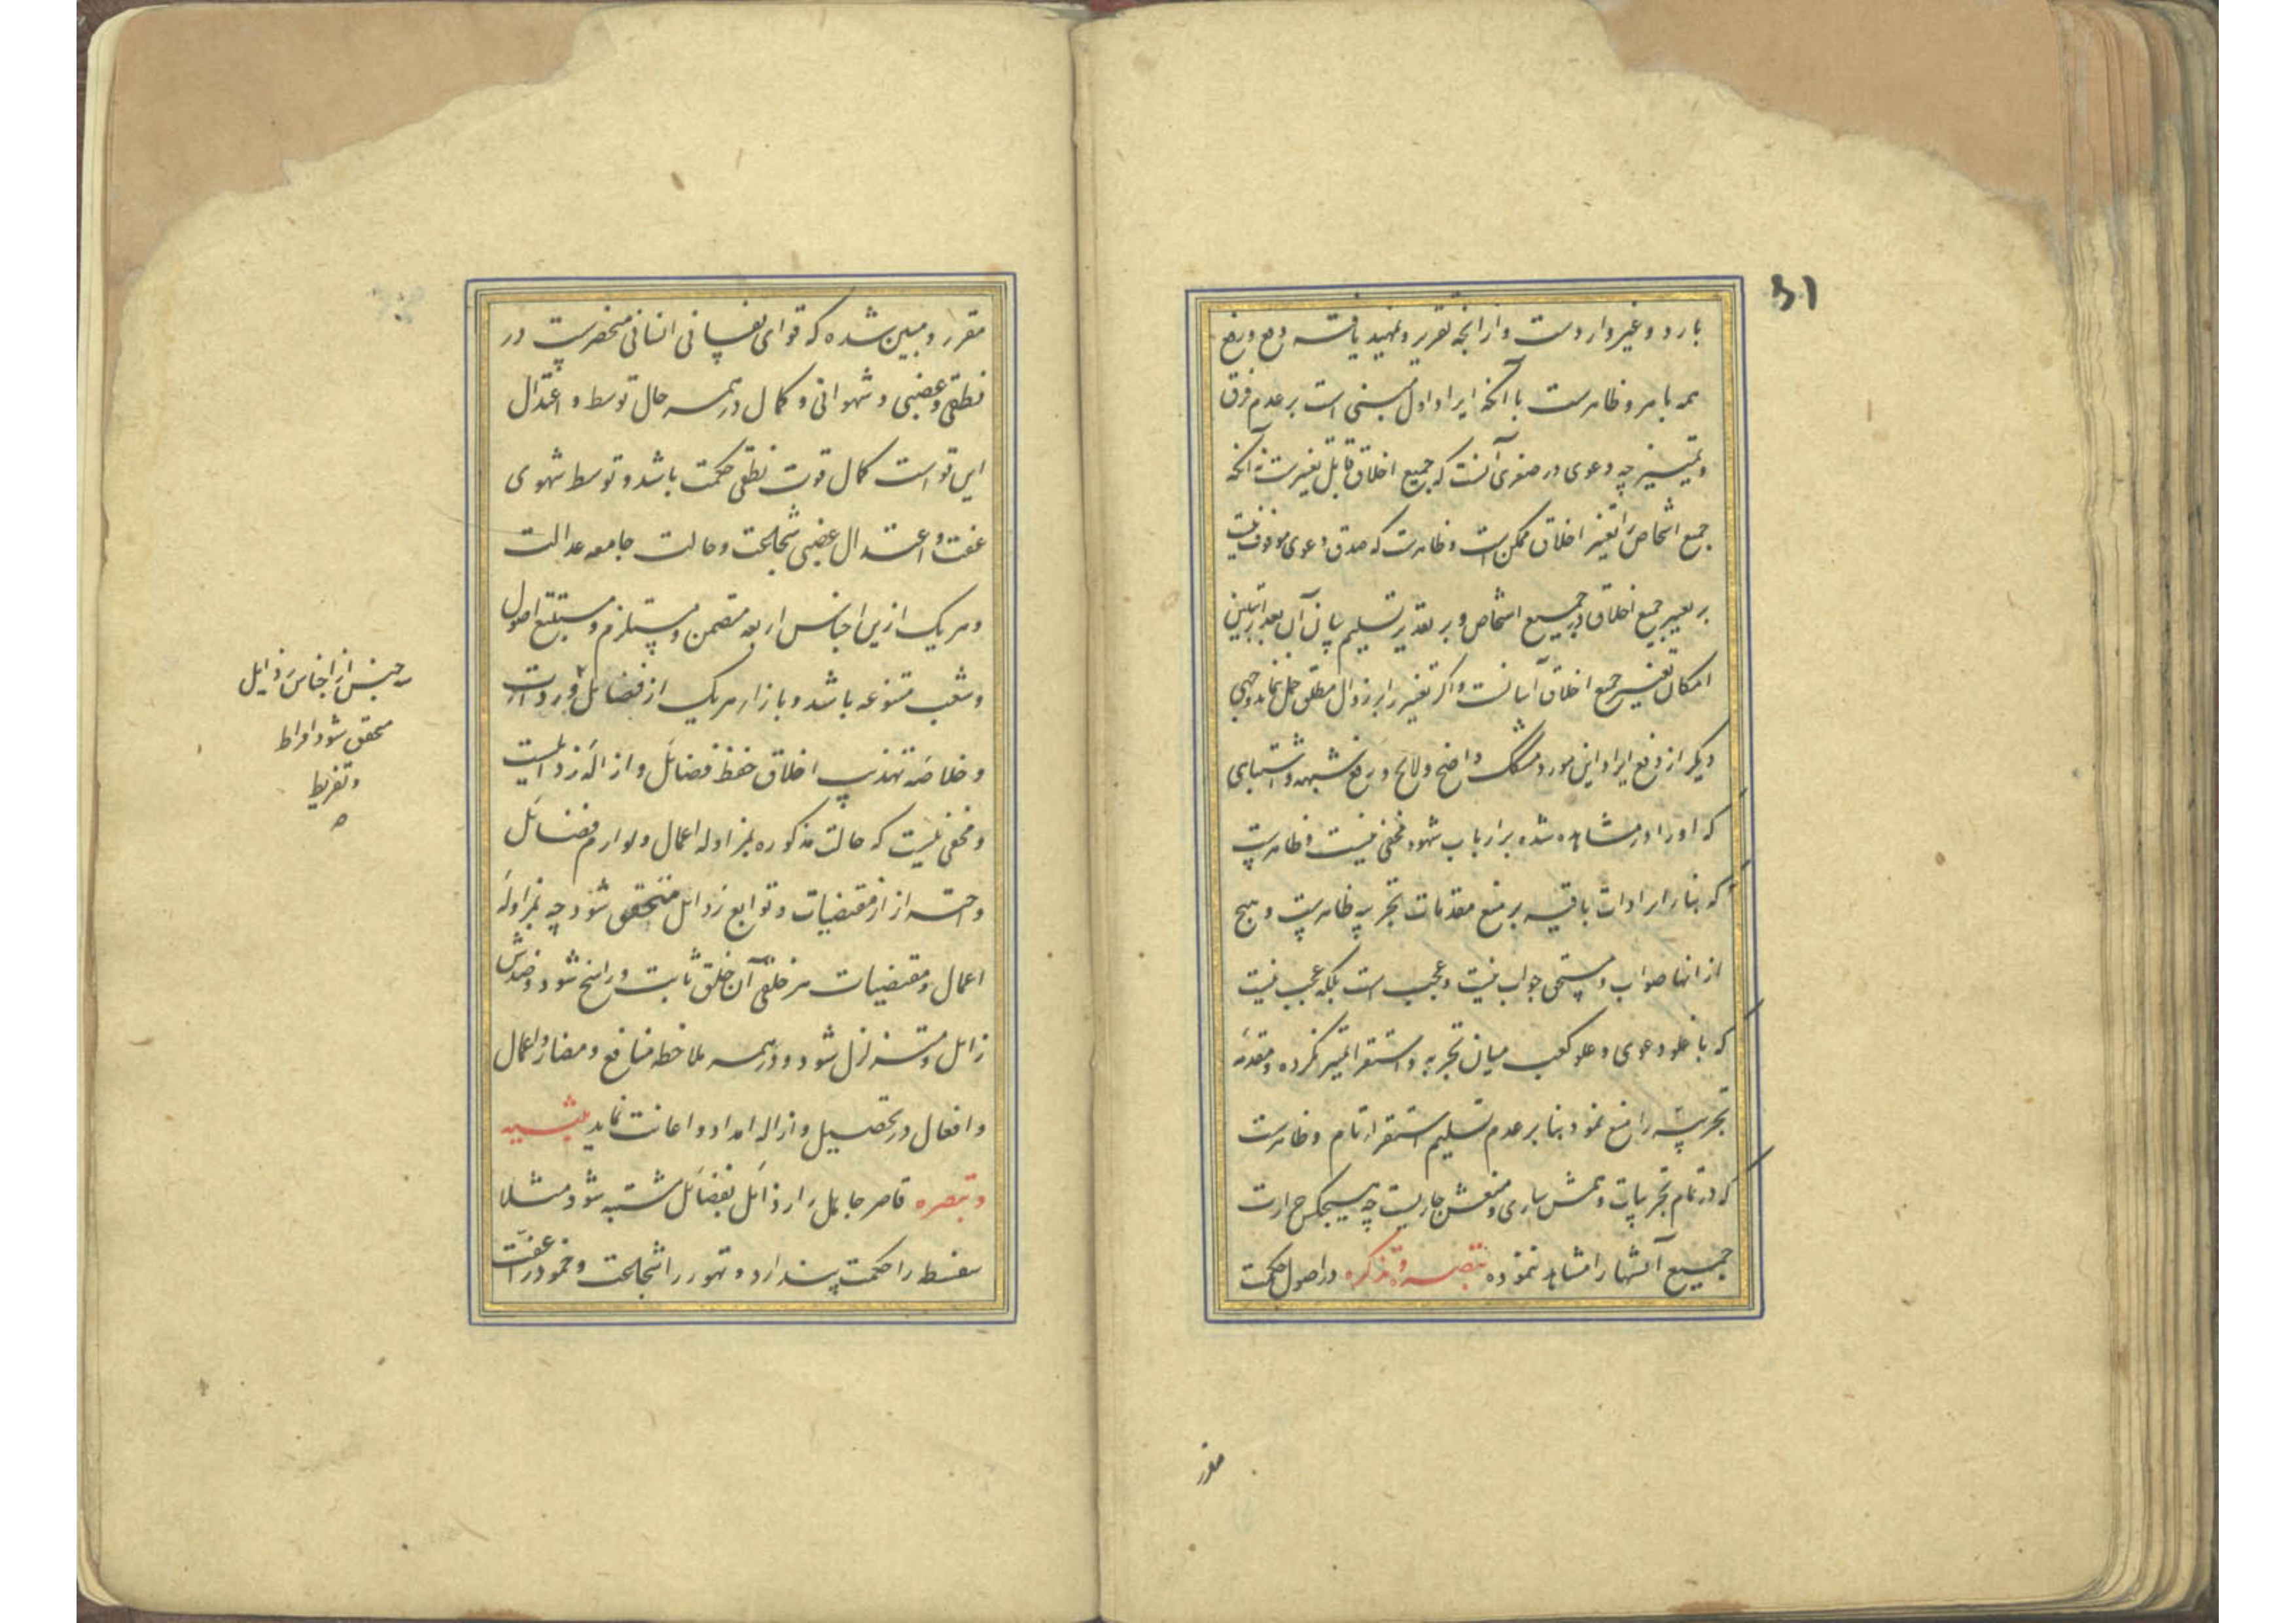 بارد و غیر وارد است و از آنچه تقریر و تمهید یافته دفع و رفع
همه باهر و ظاهرست با آنکه ایراد اول مبنی است بر عدم فرق
و تمییز چه دعوی در صغری آنست که جمیع اخلاق قابل تغیرست نه آنکه
جمیع اشخاص را تغیر اخلاق ممکن است و ظاهرست که صدق دعوی موقوف نیست
بر تغییر جمیع اخلاق در جمیع اشخاص و بر تقدیر تسلیم بیان آن بعد از تبیین
امکان تغییر جمیع اخلاق آسانست و اگر تغییر را بر زوال مطلق حمل نماید وجهی
دیگر از دفع ایراد این مورد مشکک واضح و لایح و رفع شبهه و اشتباهی
که او را در مشاهده شده بر ارباب شهود مخفی نیست و ظاهرست
که بناء ایرادات باقیه بر منع مقدمات تجربیه ظاهرست و هیچ
از انها صواب و مستحق جواب نیست و عجب است بلکه عجب نیست
که با غلو دعوی و علو کعب میان تجربه و استقرا تمییز نکرده و مقدمه
تجربیه را منع نمود بنا بر عدم تسلیم استقراء تام و ظاهرست
که در تمام تجربیات وهمش ساری و منعش جاریست چه هیچکس حرارت
جمیع آتشها را مشاهد ننموده تبصره و تذکره در اصول حکمت
مقرر
مقرر و مبین شده که قوای نفسانی انسانی منحصرست در
نطقی و غضبی و شهوانی و کمال در همه حال توسط و اعتدال
این قواست کمال قوت نطقی حکمت باشد و توسط شهوی
عفت و اعتدال غضبی شجاعت و حالت جامعه عدالت
و هر یک ازین اجناس اربعه متضمن و مستلزم و مستتبع اصول
و شعب متنوعه باشد و بازاء هر یک از فضائل
و خلاصه تهذیب اخلاق حفظ فضائل و ازاله رذائلست
و مخفی نیست که حالت مذکوره بمزاوله اعمال و لوازم فضائل
و احتراز از مقتضیات و توابع رذائل متحقق شود چه بمزاوله
اعمال و مقتضیات هر خلقی آن خلق ثابت و راسخ شود و ضدش
زائل و متزلزل شود و در همه ملاحظه منافع و مضار و اعمال
و افعال در تحصیل و ازاله امداد و اعانت نماید
و تبصره قاصر جاهل را رذائل بفضائل مشتبه شود مثلا
سفسطه را حکمت پندارد و تهور را شجاعت و خمود را عفت
جنس از اجناس رذایل
محقق شود افراط
و تفریط